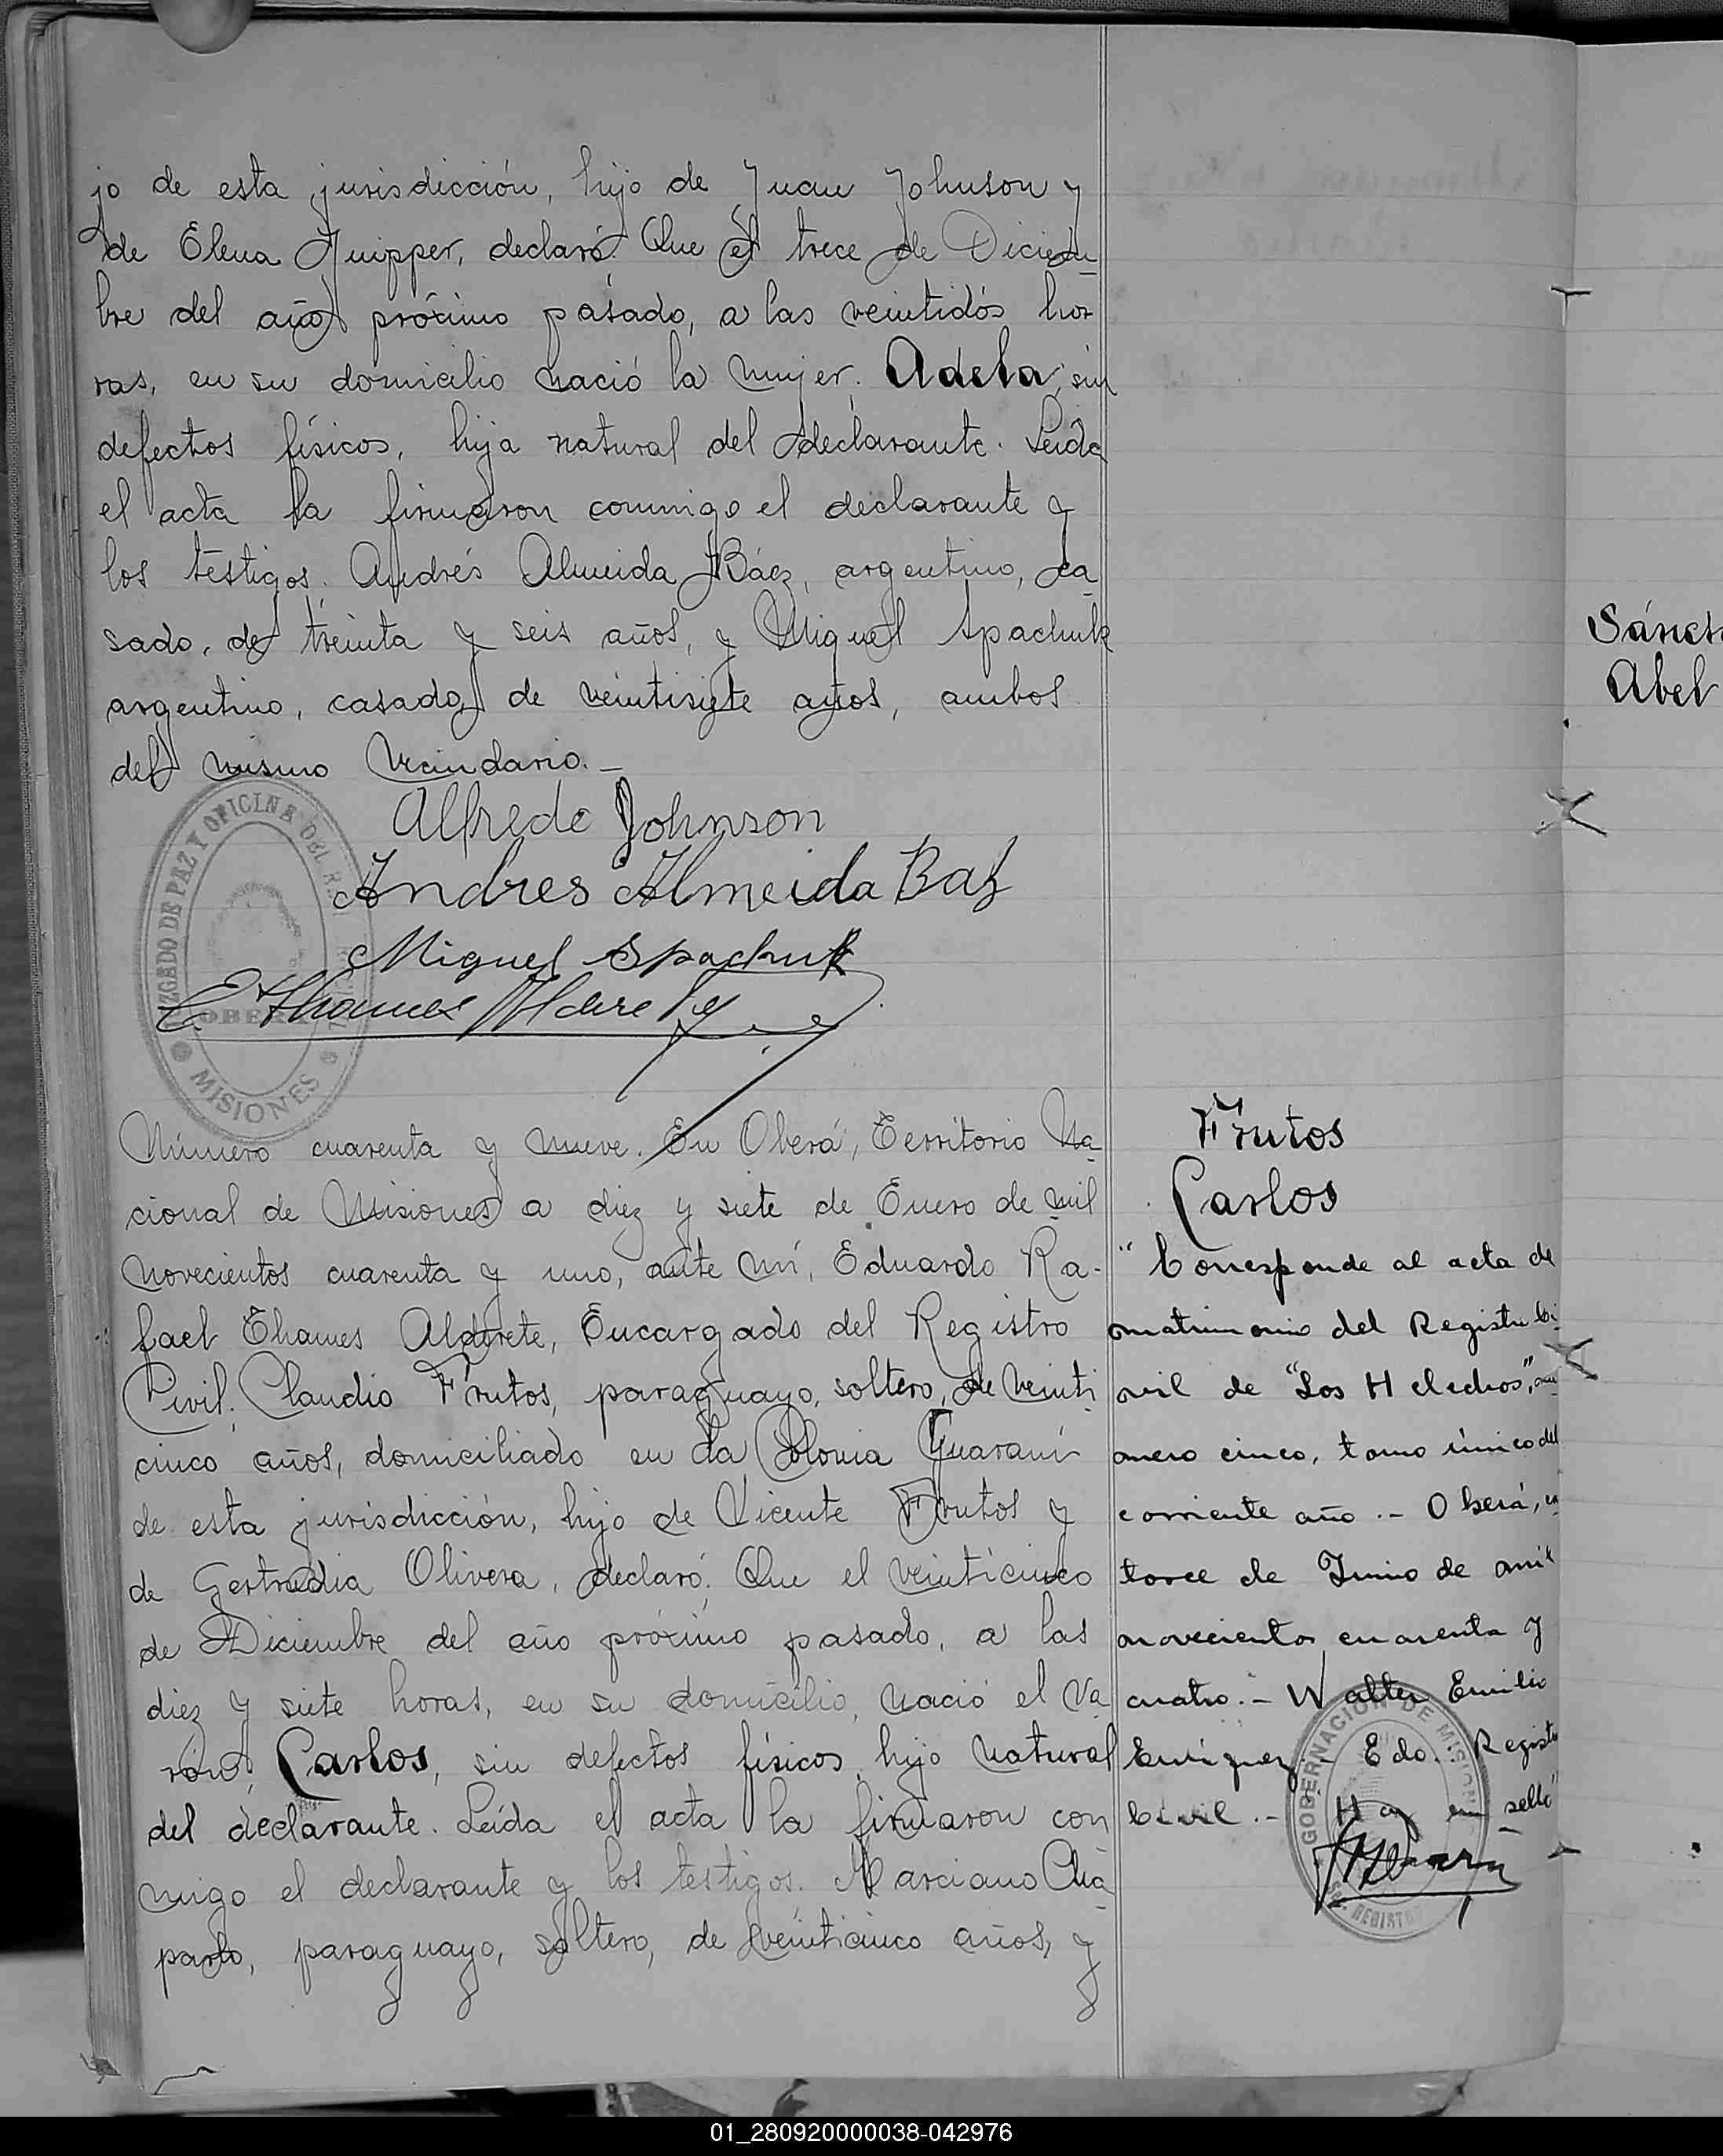 jo de esta jurisdicción, hijo de Juan Johnson y
de Elena Quipper, declaró: Que el trece de Diciem-
bre del año próximo pasado, a las veintidós ho-
ras, en su domicilio nació la mujer: Adela, sin
defectos físicos, hija natural del declarante. Leída
el acta la firmaron conmigo el declarante y
los testigos: Andrés Almeida Báez, argentino, ca-
sado, de treinta y seis años, y Miguel Spachuk
argentino, casado, de veintisiete años, ambos
del mismo vecindario.-
JUZGADO DE PAZ Y OFICINA DEL
OBERA
MISIONES
Alfredo Johnson
Andres Almeida Baz
Miguel Spachuk
E Thames Alderete
Número cuarenta y nueve. En Oberá, Territorio Na-
cional de Misiones a diez y siete de Enero de mil
novecientos cuarenta y uno, ante mí, Eduardo Ra-
fael Thames Alderete, Encargado del Registro
Civil: Claudio Frutos, paraguayo, soltero, de veinti
cinco años, domiciliado en la Colonia Guaraní
de esta jurisdicción, hijo de Vicente Frutos y
de Gertrudia Olivera, declaró: Que el veinticinco
de Diciembre del año próximo pasado, a las
diez y siete horas, en su domicilio, nació el va
rón, Carlos, sin defectos físicos, hijo natural
del declarante. Leída el acta la firmaron con
migo el declarante y los testigos: Marciano Cha
parro, paraguayo, soltero, de veinticinco años, y
Frutos
Carlos
"Corresponde al acta de
matrimonio del Registro Ci
vil de "Los Helechos", nu
mero cinco, tomo único del
corriente año.- Oberá, ca
torce de Junio de mil
novecientos cuarenta y
cuatro.- Walter Emilio
Enriquez - Edo. Registro
Civil.- Hay un sello"
GOBERNACION DE MISIONES
REGISTRO
Sánch
Abel
01_280920000038-042976